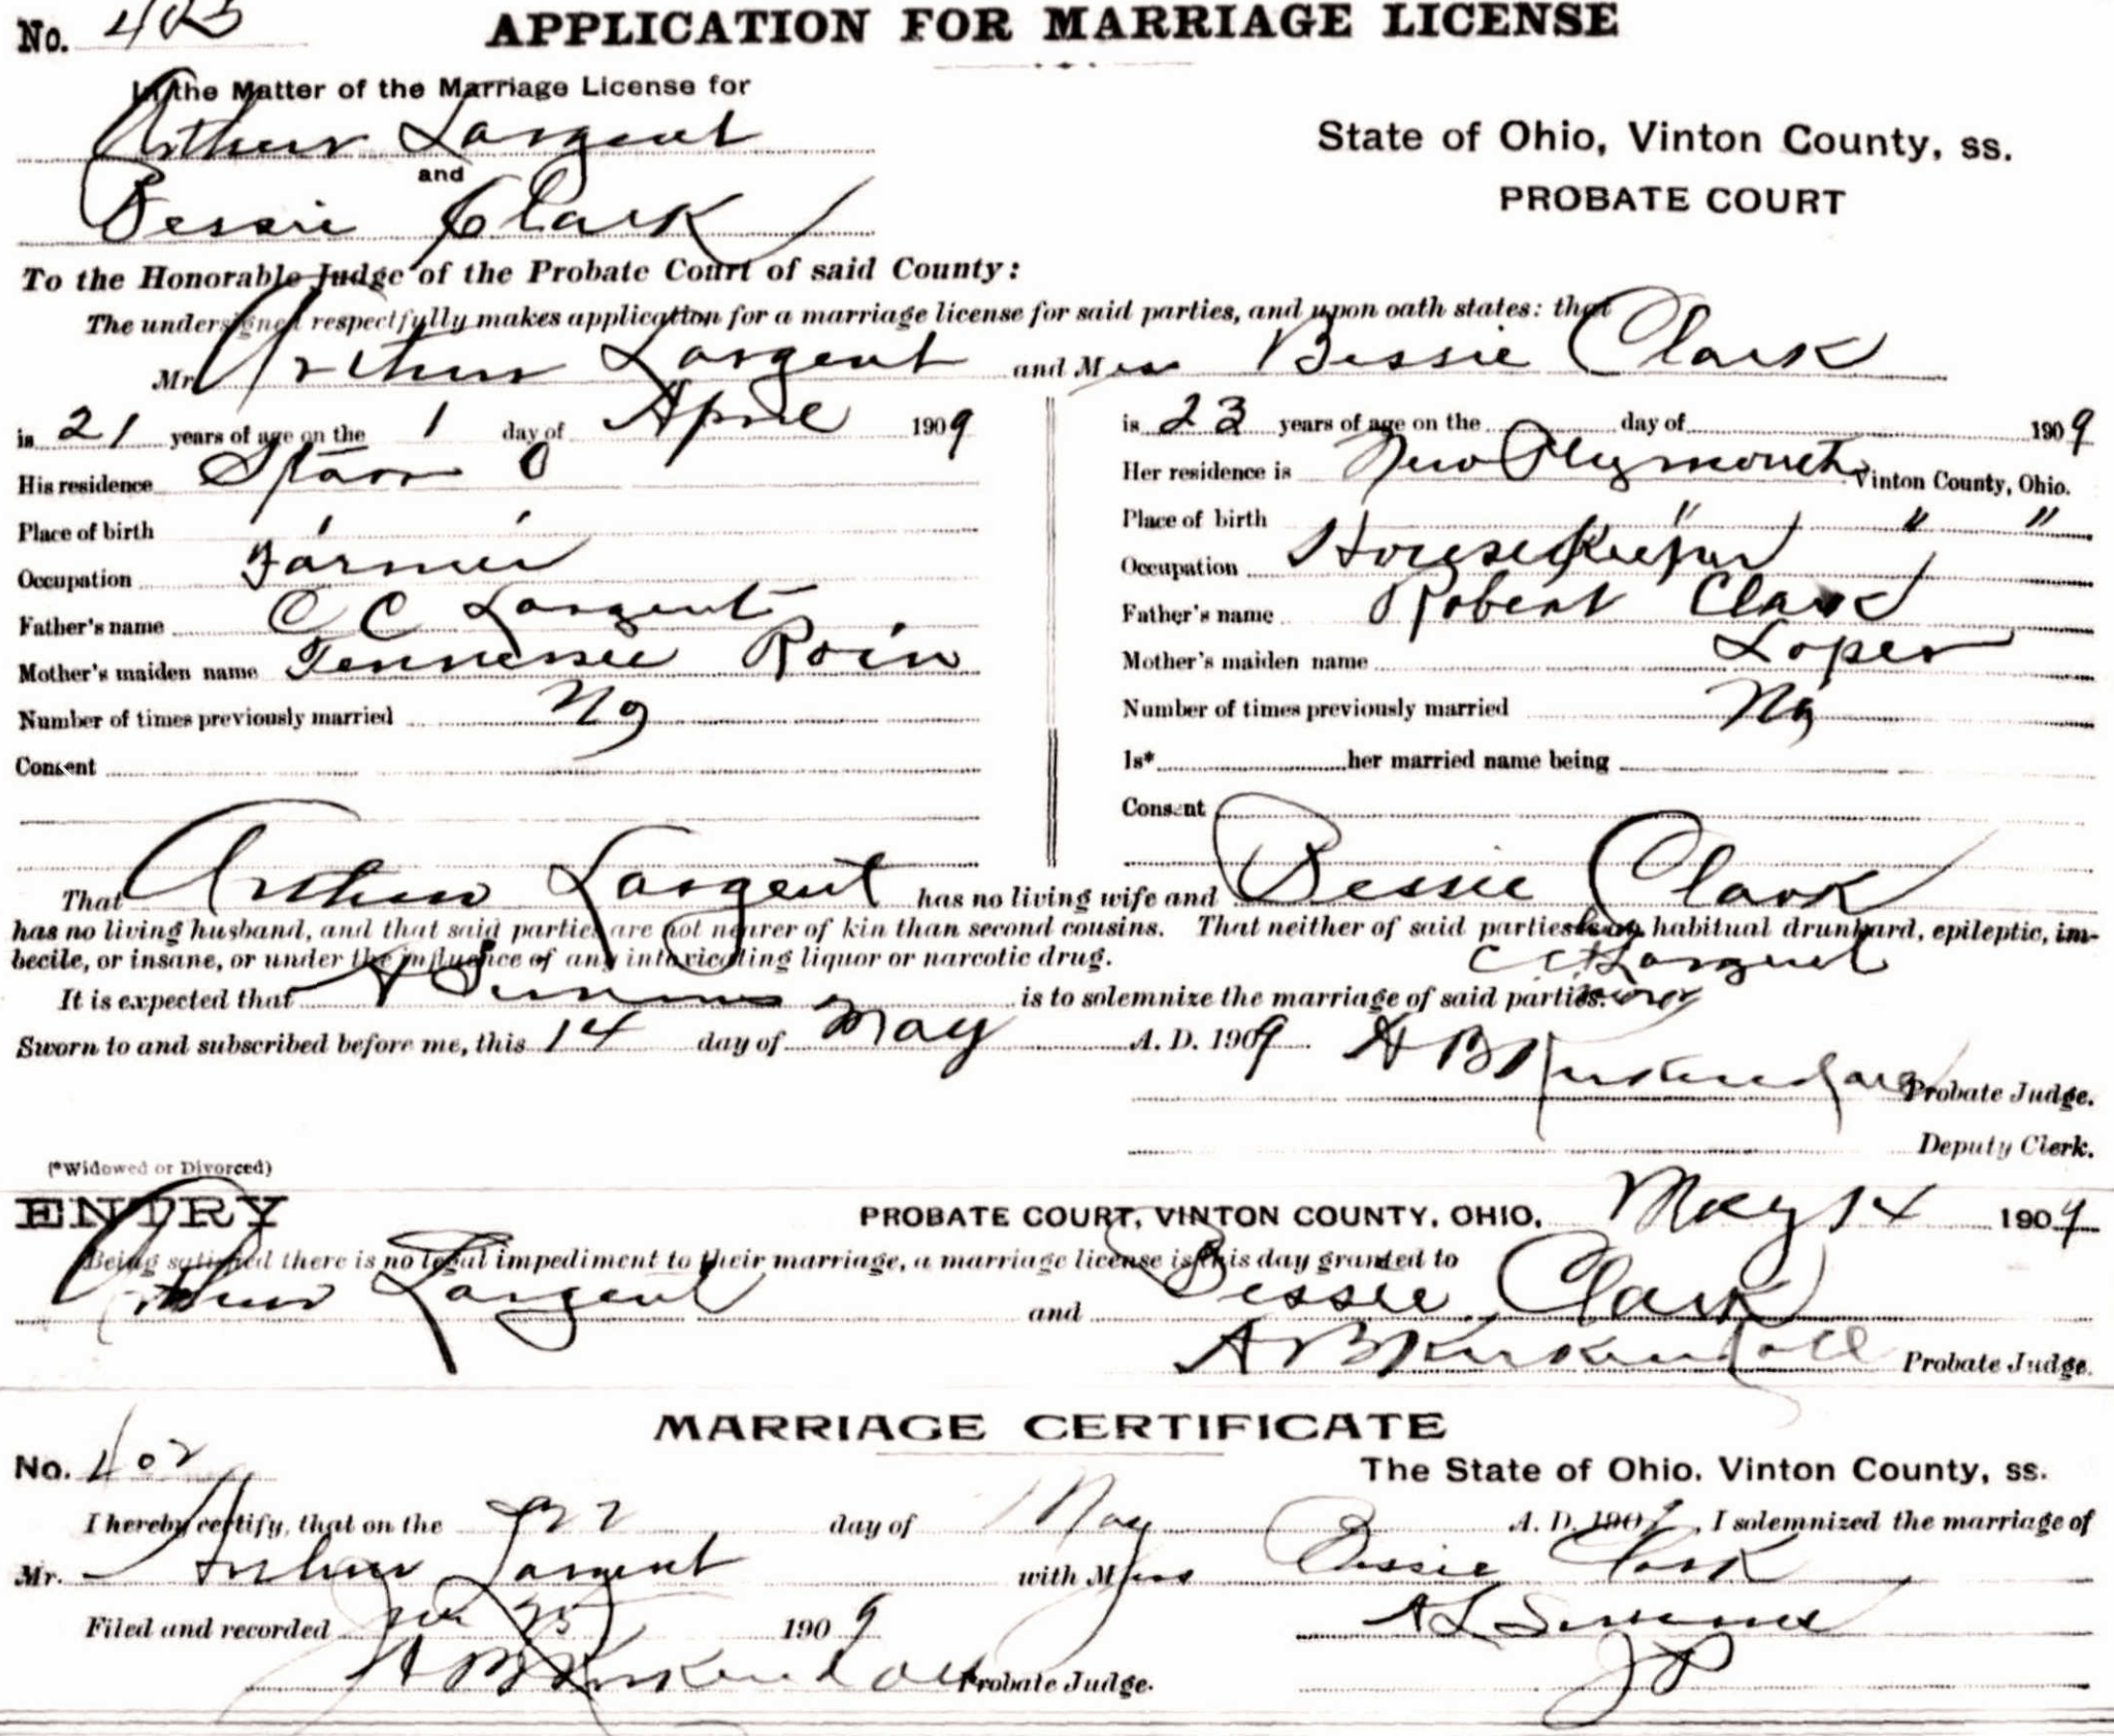 No. 403 APPLICATION FOR MARRIAGE LICENSE
In the Matter of the Marriage License for
Arthur Largent
and
Bessie Clark
State of Ohio, Vinton County, ss.
PROBATE COURT
To the Honorable Judge of the Probate Court of said County:
The undersigned respectfully makes application for a marriage license for said parties, and upon oath states: that
Mr. Arthur Largent and Miss Bessie Clark
is 21 years of age on the 1 day of April 1909
His residence Starr O
Place of birth " "
Occupation Farmer
Father's name C C Largent
Mother's maiden name Tennessee
Number of times previously married No
Consent
is 23 years of age on the day of 1909
Her residence is New Plymouth Vinton County, Ohio.
Place of birth " " "
Occupation Housekeeper
Father's name Robert Clark
Mother's maiden name Loper
Number of times previously married No
Is* her married name being
Consent
That Arthur Largent has no living wife and Bessie Clark
has no living husband, and that said parties are not nearer of kin than second cousins. That neither of said parties is an habitual drunkard, epileptic, im-
becile, or insane, or under the influence of any intoxicating liquor or narcotic drug.
C C Largent
It is expected that is to solemnize the marriage of said parties.
Sworn to and subscribed before me, this 14 day of May A. D. 1909 A B Kirkendall
Probate Judge.
Deputy Clerk.
(*Widowed or Divorced)
ENTRY PROBATE COURT, VINTON COUNTY, OHIO, May 14 1909
Being satisfied there is no legal impediment to their marriage, a marriage license is this day granted to
Arthur Largent and Bessie Clark
A B Kirkendall Probate Judge.
MARRIAGE CERTIFICATE
No. 402 The State of Ohio, Vinton County, ss.
I hereby certify, that on the 22 day of May A. D. 1909, I solemnized the marriage of
Mr. Arthur Largent with Miss Bessie Clark
Filed and recorded 1909
A B Kirkendall Probate Judge.
A L
J P